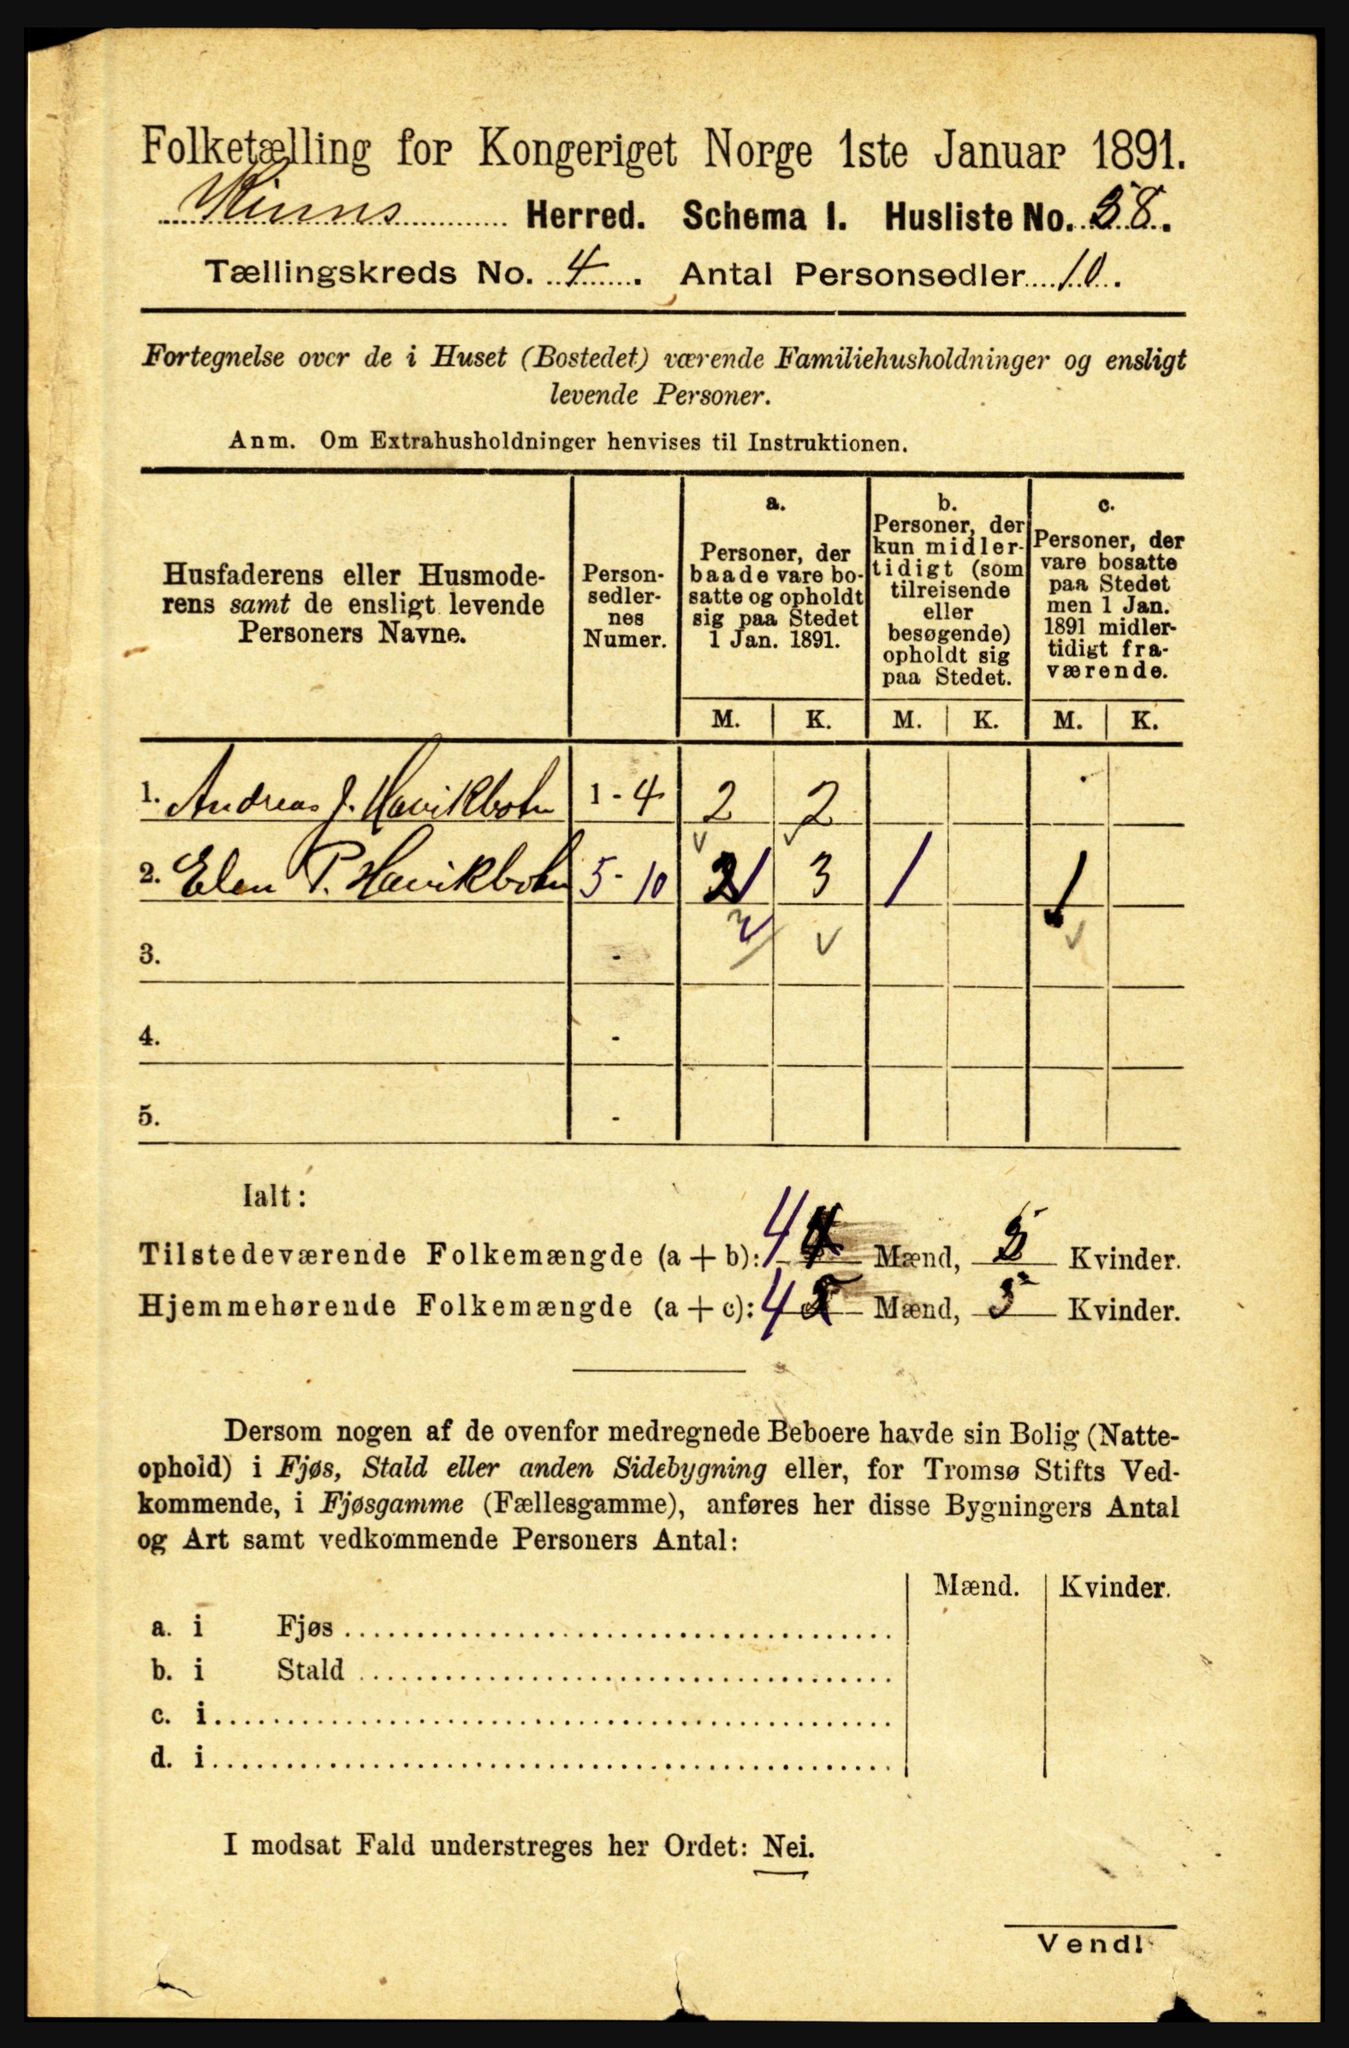 Folketælling for Kongeriget Norge 1ste Januar 1891.
Kinns Herred. Schema I. Husliste No. 38.
Tællingskreds No. 4. Antal Personsedler 10.
Fortegnelse over de i Huset (Bostedet) værende Familiehusholdninger og ensligt
levende Personer.
Anm. Om Extrahusholdninger henvises til Instruktionen.
Husfaderens eller Husmode-
rens samt de ensligt levende
Personers Navne.
Person-
sedler-
nes
Numer.
a.
Personer, der
baade vare bo-
satte og opholdt
sig paa Stedet
1 Jan. 1891.
b.
Personer, der
kun midler-
tidigt (som
tilreisende
eller
besøgende)
opholdt sig
paa Stedet.
c.
Personer, der
vare bosatte
paa Stedet
men 1 Jan.
1891 midler-
tidigt fra-
værende.
M. K. M. K. M. K.
1. Andreas J. Havikbotn 1 - 4 2 2
2. Elen P. Havikbotn 5 - 10 3 1 1
3. -
4. -
5. -
Ialt:
Tilstedeværende Folkemængde (a + b): 4 Mænd, 5 Kvinder.
Hjemmehørende Folkemængde (a + c): 4 Mænd, 5 Kvinder.
Dersom nogen af de ovenfor medregnede Beboere havde sin Bolig (Natte-
ophold) i Fjøs, Stald eller anden Sidebygning eller, for Tromsø Stifts Ved-
kommende, i Fjøsgamme (Fællesgamme), anføres her disse Bygningers Antal
og Art samt vedkommende Personers Antal:
Mænd. Kvinder.
a. i Fjøs
b. i Stald
c. i
d. i
I modsat Fald understreges her Ordet: Nei.
Vend!